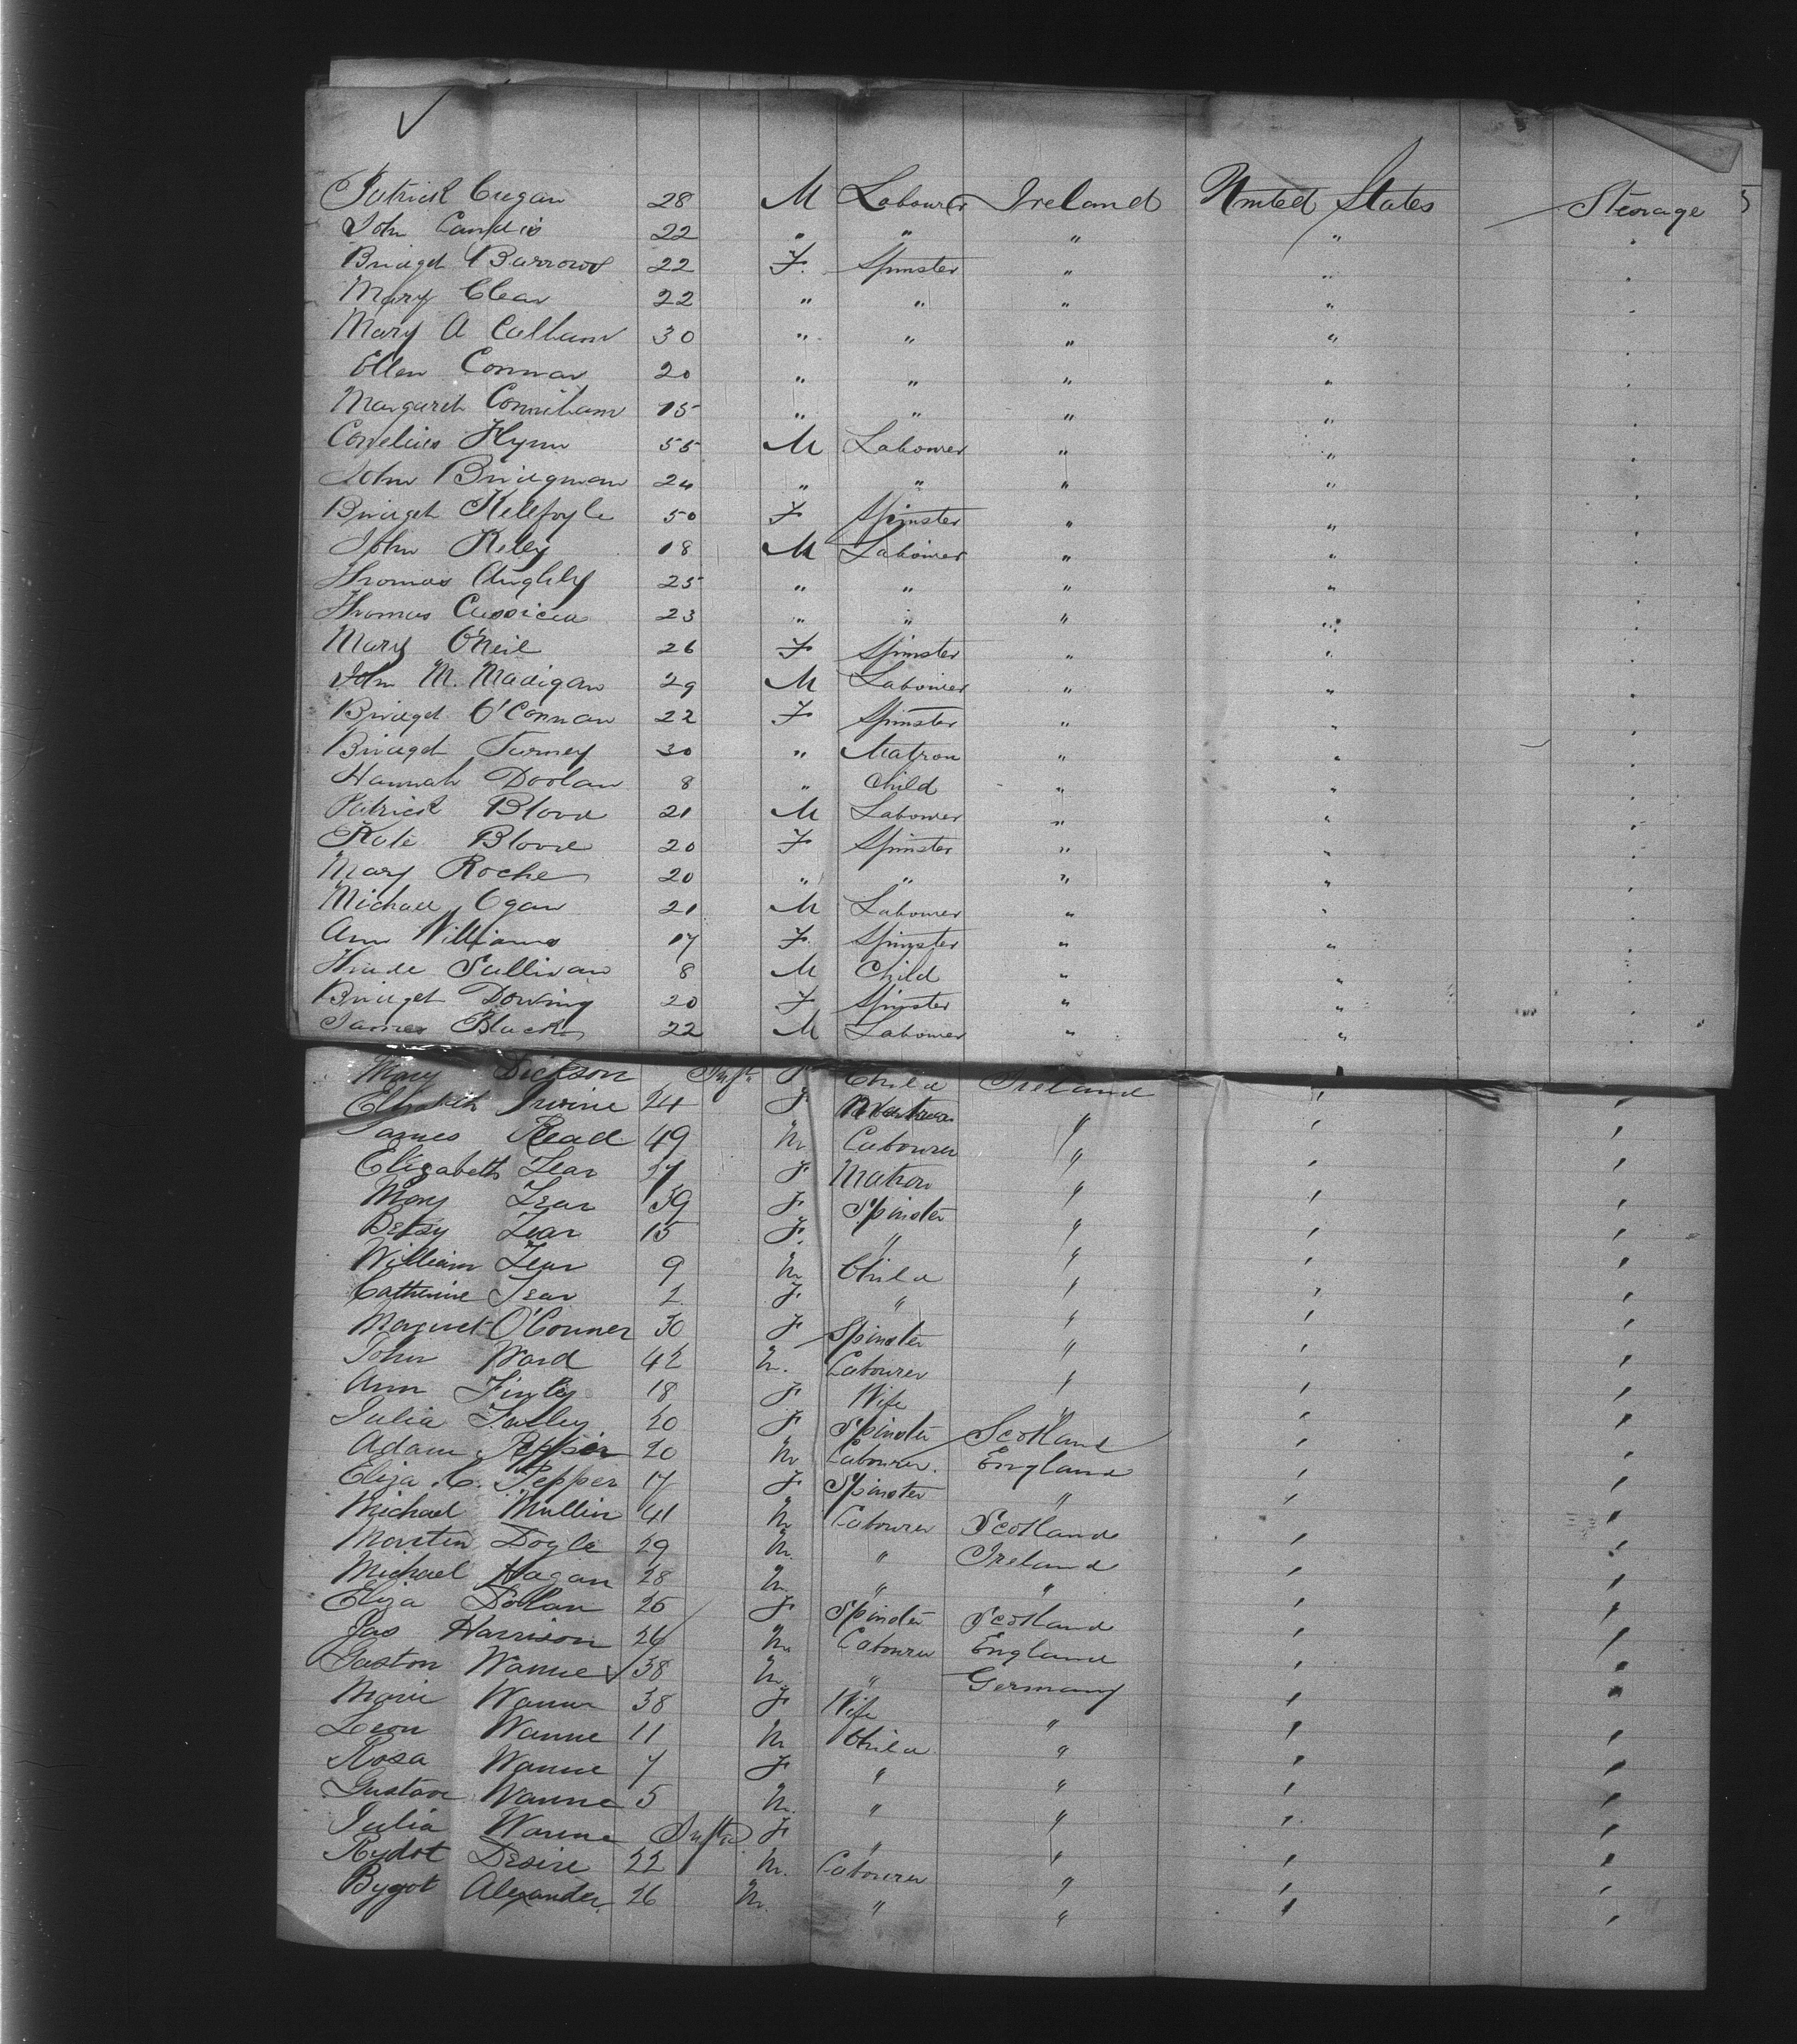 Patrick Cregan 28 M Labourer Ireland United States Sterage
John 22 " " " " "
Bridget Barrows 22 F. Spinster " " "
Mary Clear 22 " " " " "
Mary A 30 " " " " "
Ellen Connar 20 " " " " "
Margareth 15 " " " " "
Cornelius Flynn 55 M Labourer " " "
John Bridgman 24 " " " " "
Bridget Killfoyle 50 F Spinster " " "
John Kiley 18 M Labourer " " "
Thomas 25 " " " " "
Thomas 23 " " " " "
Mary O'Neil 26 F Spinster " " "
John M. Madigan 29 M Labourer " " "
Bridget O'Connar 22 F Spinster " " "
Bridget Turney 30 " Matron " " "
Hannah Doolan 8 " Child " " "
Patrick Blood 21 M Labourer " " "
Kate Blood 20 F Spinster " " "
Mary Roche 20 " " " " "
Michael Ogan 21 M Labourer " " "
Ann Williams 17 F. Spinster " " "
Sullivan 8 M Child " " "
Bridget Dowling 20 F Spinster " " "
James Black 22 M Labourer " " "
Mary Dickson Inft. F Child Ireland " "
Elizabeth Irvine 24 F. Matron " " "
James Read 49 M Labourer " " "
Elizabeth Lear 37 F Matron " " "
Mary Lear 39 F Spinster " " "
Betsy Lear 15 F. " " " "
William Lear 9 M Child " " "
Catherine Lear 2 F " " " "
Margret O'Conner 30 F Spinster " " "
John Ward 42 M. Labourer " " "
Ann Finley 18 F Wife " " "
Julia Falley 20 F Spinster Scotland " "
Adam Pepper 20 M Labourer. England " "
Eliza C. Pepper 17 F Spinster " " "
Michael Mullin 41 M Labourer Scotland " "
Martin Doyle 29 M. " Ireland " "
Michael Hagan 28 M. " " " "
Eliza Dollan 25 F Spinster Scotland " "
Jas Harrison 26 M. Labourer England " "
Gaston Wanne 38 M. " Germany " "
Marie Wanne 38 F Wife " " "
Leon Wanne 11 M Child " " "
Rosa Wanne 7 F " " " "
Gustave Wanne 5 M. " " " "
Julia Wanne Inft. F " " " "
Rydot Desire 22 M. Labourer " " "
Bygot Alexander 26 M. " " " "